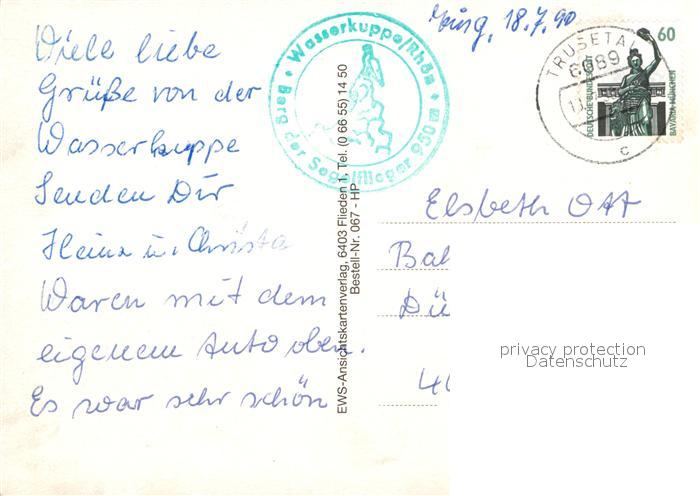 Viele liebe
Grüße von der
Wasserkuppe
Senden Dir
Heinz u. Christa
Waren mit dem
eigenem Auto oben.
Es war sehr schön
Wasserkuppe/Rhön
Berg der Segelflieger 950 m
EWS-Ansichtskartenverlag, 6403 Flieden 1, Tel. (0 66 55) 14 50
Bestell-Nr. 067 - HP
18.7.90
TRUSETAL
6089
c
60
DEUTSCHE BUNDESPOST
BAVARIA MÜNCHEN
Elsbeth Ott
Bal
Dü
40
privacy protection
Datenschutz